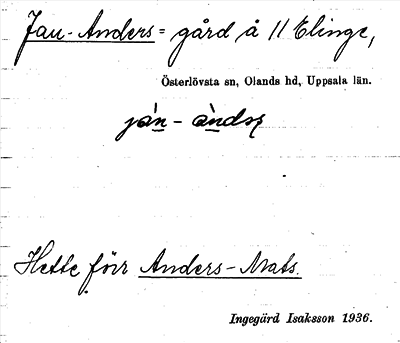 Jan-Anders = gård å 11 Elinge,
Österlövsta sn, Olands hd, Uppsala län.
Hette förr Anders-Mats.
Ingegärd Isaksson 1936.